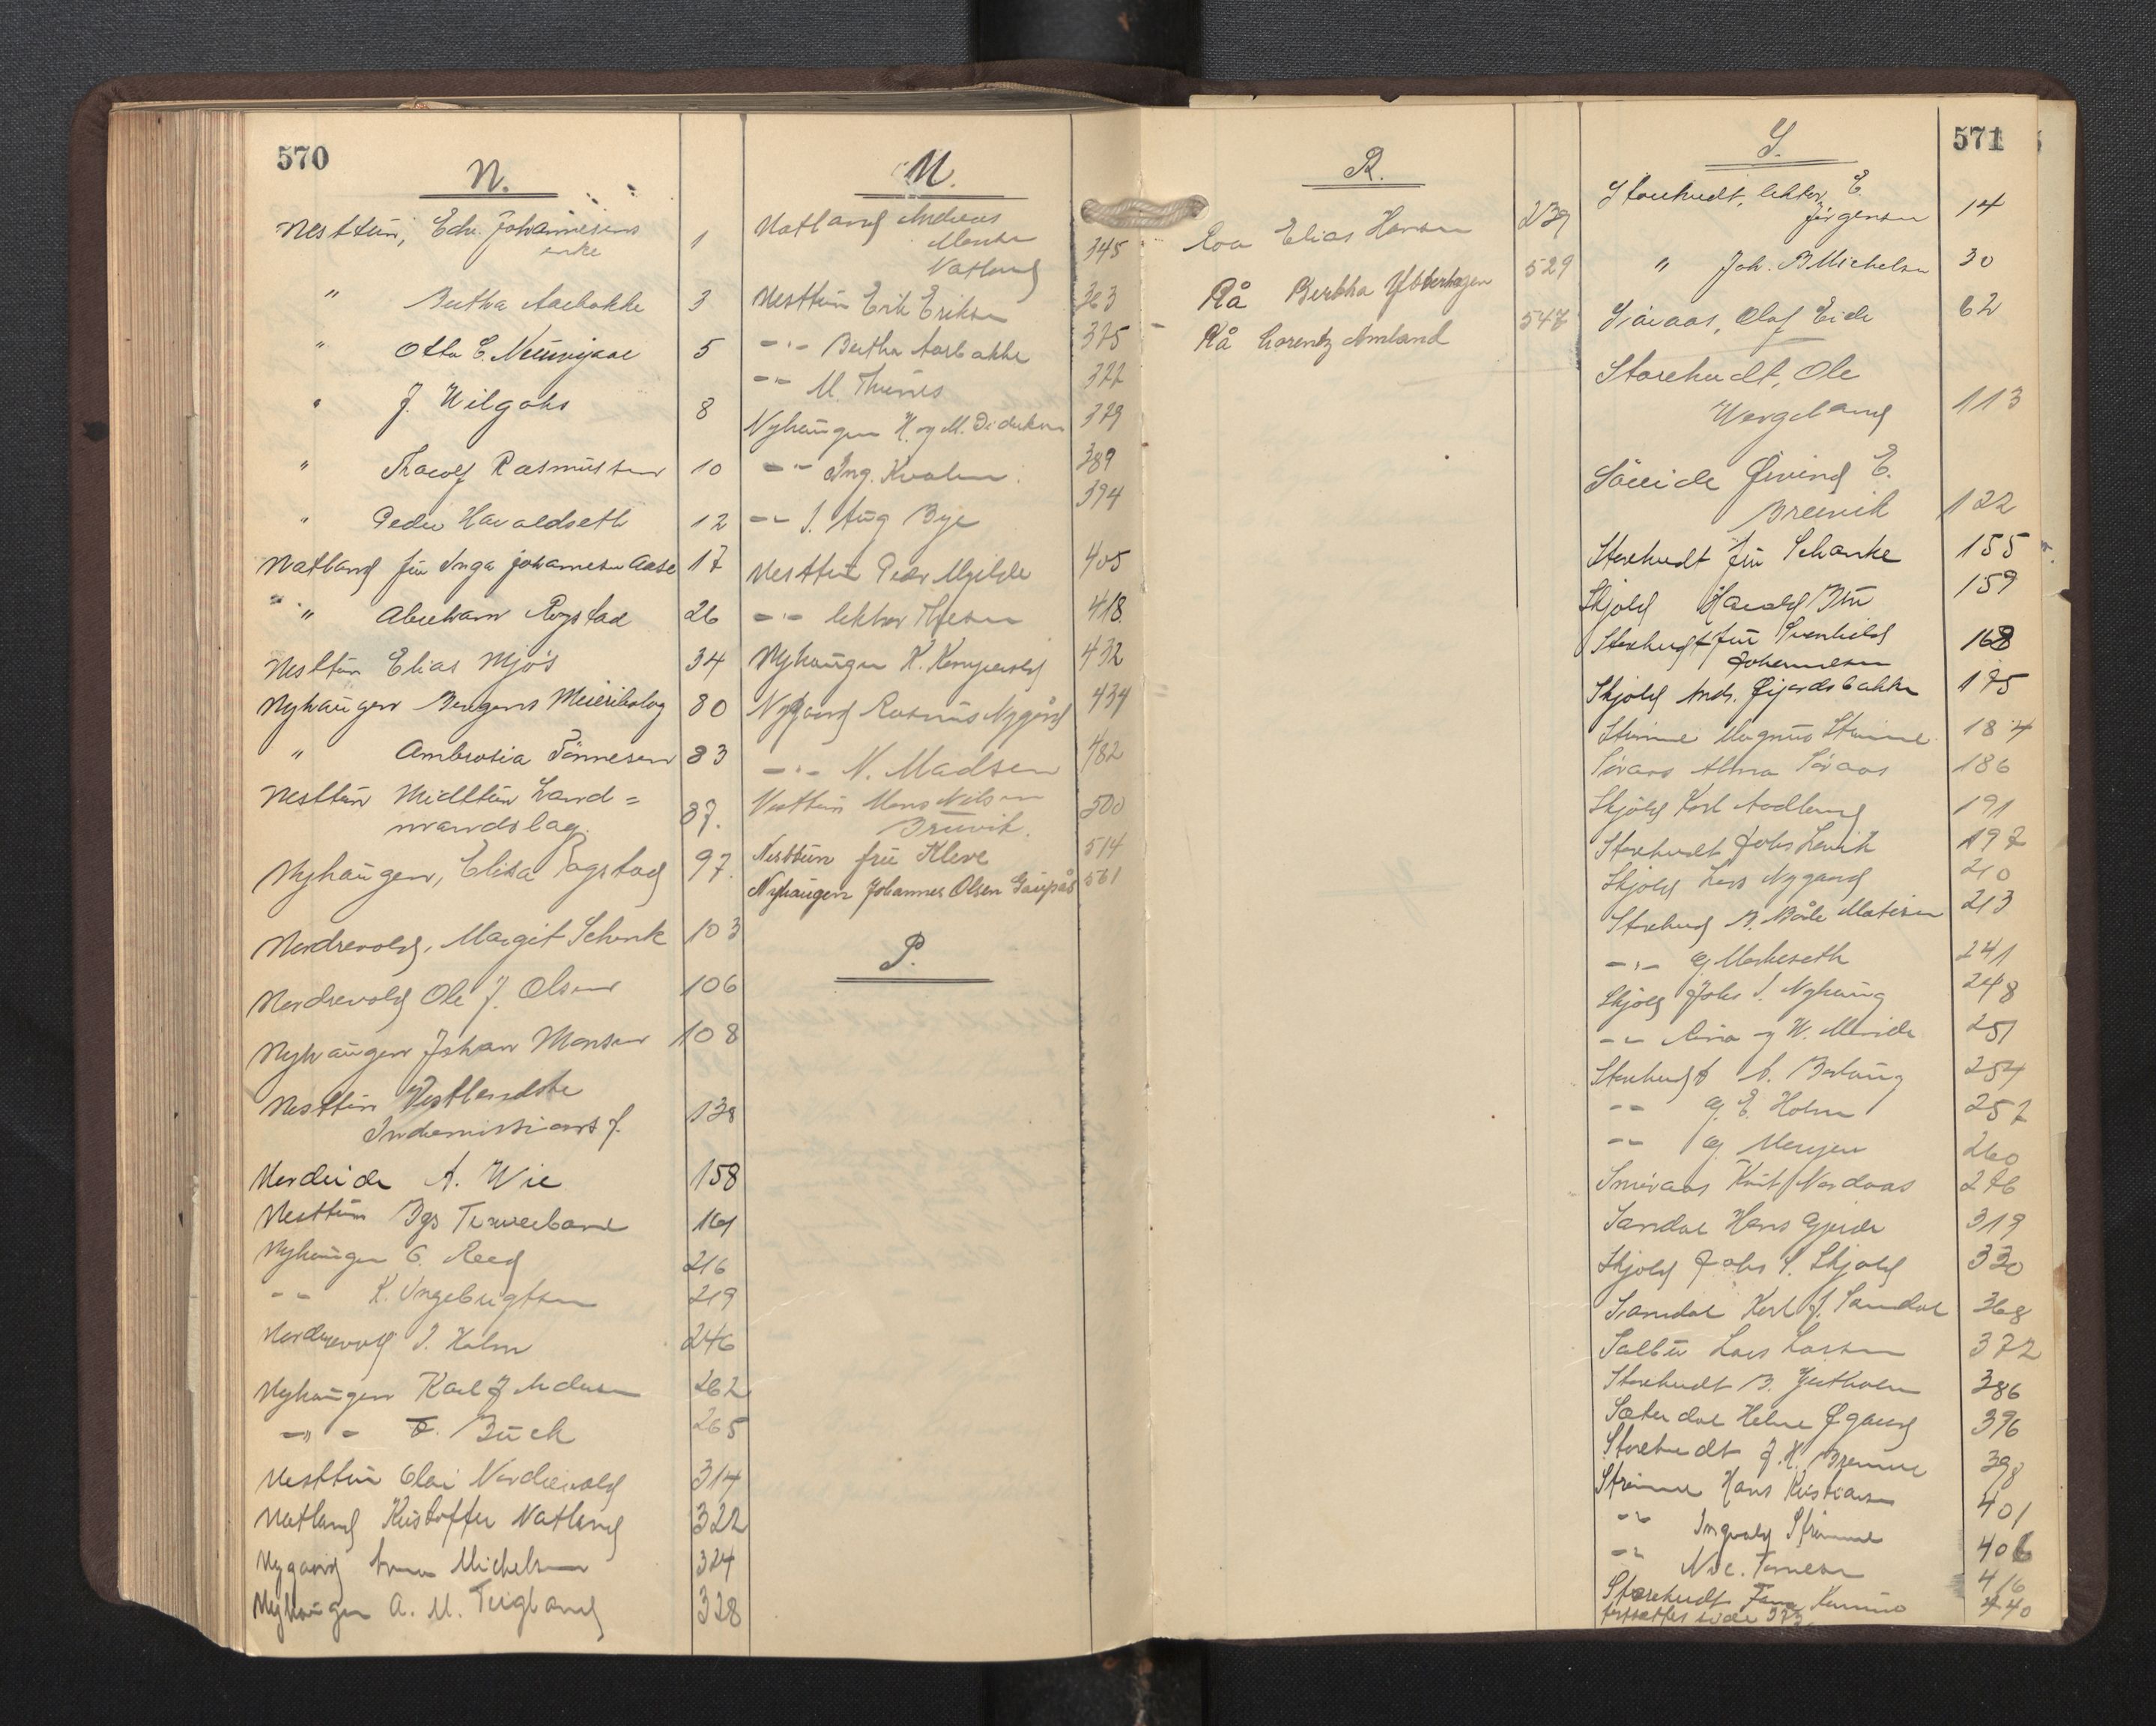 570
N.
Nesttun, Edv. Johannesens
enke 1
" Bertha Aarbakke 3
" Otto C. 5
" J. Wilgohs 8
" Rasmussen 10
" Peder Haraldseth 12
Natland fru Inga Johannesen Aase 17
" Abraham Rogstad 26
Nesttun Elias Mjøs 34
Nyhaugen Bergens Meieribolag 80
" Ambrosia Tönnesen 83
Nesttun Midttun Land=
mandslag. 87.
Nyhaugen, Elisa Rogstad 97.
Nordrevold, Margit Schenk 103
Nordrevold Ole J. Olsen 106
Nyhaugen Johan Monsen 108
Nesttun Vestlandske
Indremissions f. 138
Nordeide A. Wie 158
Nesttun Bgs 161
Nyhaugen O. Reed 216
-"- K. Ingebrigtsen 219
Nordrevold I. Holm 246
Nyhaugen Karl J. Andersen 262
-"- Buch 265
Nesttun Olai Nordrevold 314
Natland Kristoffer Natland 322
Nygaard Anna Michelsen 324
Nyhaugen A. M. Teigland 328
N.
Natland Andreas
Monsen
Natland 345
Nesttun Erik Eriksen 363
-"- Bertha Aarbakke 375
-"- M. Thunes 377
Nyhaugen H. og M. Didriksen 379
-"- Ing. Kvalen 389
-"- J. Aug Bye 394
Nesttun Peder Mjelde 405
-"- lektor 418
Nyhaugen K. 432
Nygaard Rasmus Nygård 434
-"- N. Madsen 482
Nesttun Mons Nilsen
Bruvik. 500
Nesttun fru Kleve 514
Nyhaugen Johannes Olsen Gaupås 561
P.
R.
Roa Elias Hansen 239
Rå Bertha Ytterhagen 529
Rå Lorentz Amland 547
S.
571
Storetvedt, lektor, E.
Jörgensen 14
" Joh. B Michelsen 30
Olaf Eide 62
Storetvedt, Ole
Vergeland 113
Söreide Øivind E.
Breivik 122
Storetvedt fru Schanke 155
Skjold Harald Bru 159
Storetvedt fru Svenhild
Johannesen 168
Skjold And. Øijordsbakken 175
Strimme Magnus Strimme 184
Søraas Alma Søraas 186
Skjold Karl Aadland 191
Storetvedt Johs Lervik 197
Skjold Lars Nygaard 210
Storetvedt B. Böhle Matisen 213
-"- Markeseth 241
Skjold Johs S. Nyhaug 248
-"- og W. 251
Storetvedt A. 254
-"- G. E. Holm 257
-"- G. Meyer 260
Smöraas Knut Nordaas 276
Sandal Hans Gjerde 319
Skjold Johs S. Skjold 330
Sandal Karl J. Sandal 368
Salbu Lars Larsen 372
Storetvedt B. 386
Sæterdal Helene Øgaard 396
Storetvedt J. H. 398
Strimme Hans Kristiansen 401
-"- Ingvald Strimme 406
-"- Nic. Tonesen 416
Storetvedt Fana Kommune 440
fortsættes side 573